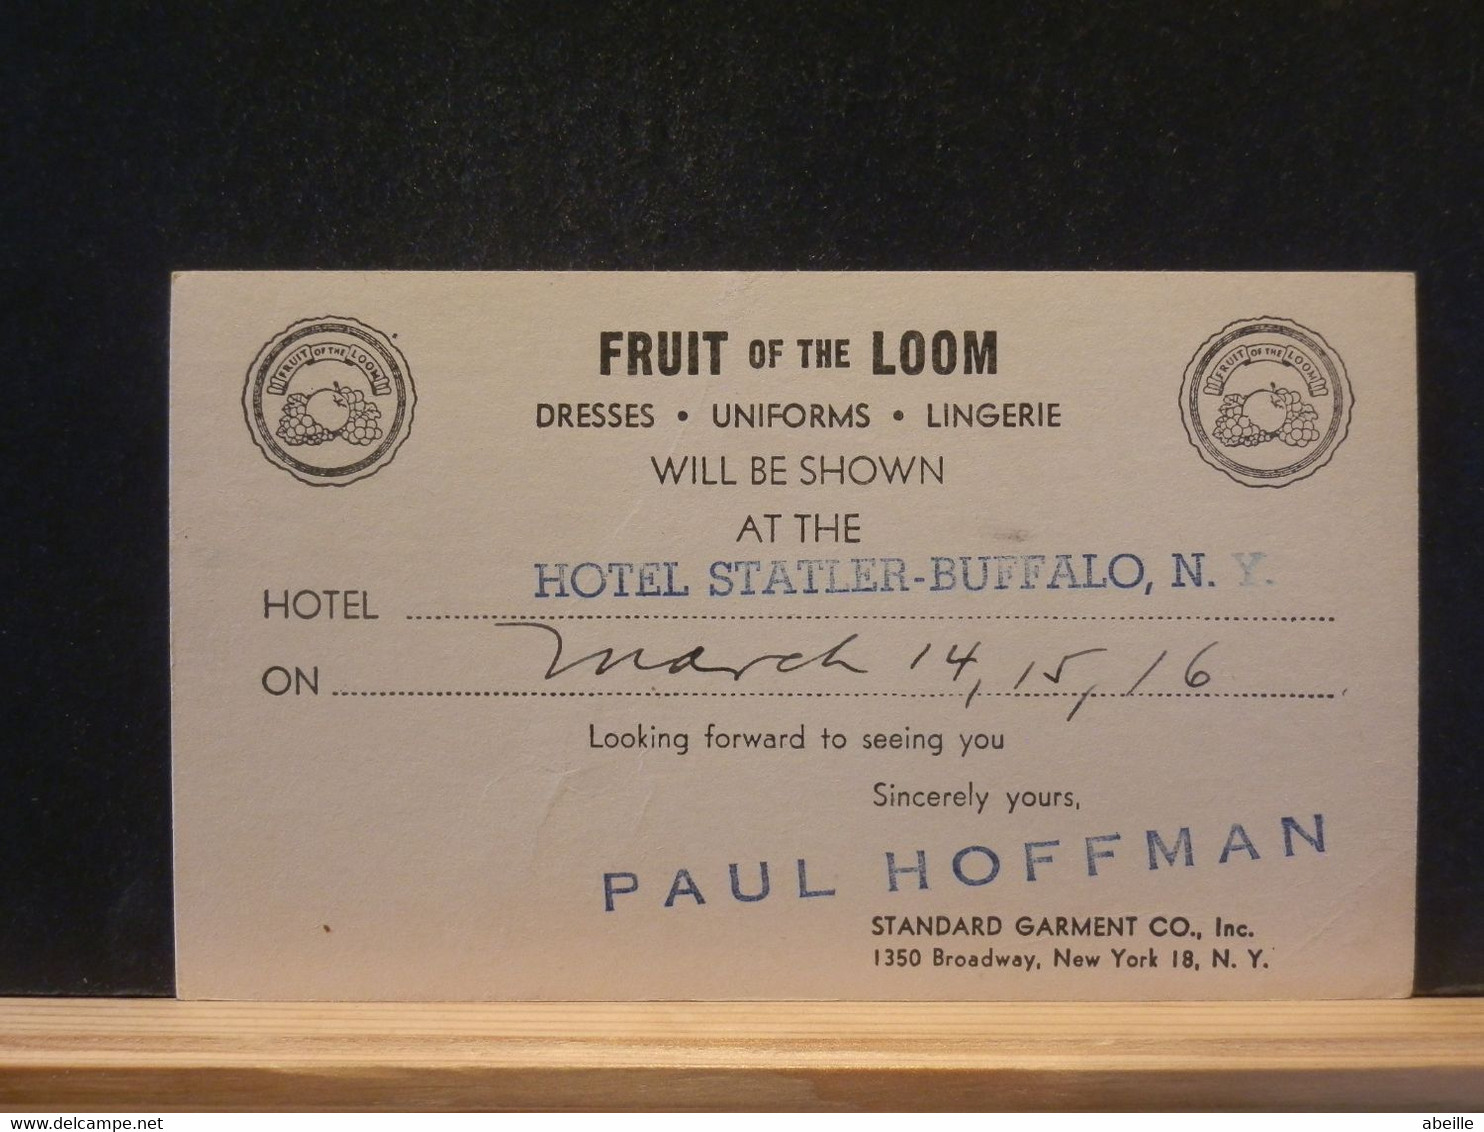 FRUIT OF THE LOOM
FRUIT OF THE LOOM
FRUIT OF THE LOOM
DRESSES • UNIFORMS • LINGERIE
WILL BE SHOWN
AT THE
HOTEL HOTEL STATLER-BUFFALO, N. Y.
ON March 14, 15, 16
Looking forward to seeing you
Sincerely yours,
PAUL HOFFMAN
STANDARD GARMENT CO., Inc.
1350 Broadway, New York 18, N. Y.
delcampe.net
abeille